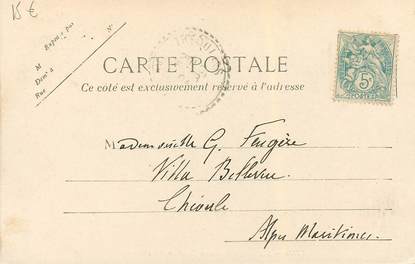 15 €
Expédié par
M
Demt à
Rue
N°
CARTE POSTALE
Ce côté est exclusivement réservé à l'adresse
5c
POSTES
Mademoiselle G. Feugère
Villa Bellevue
Théoule
Alpes Maritimes.